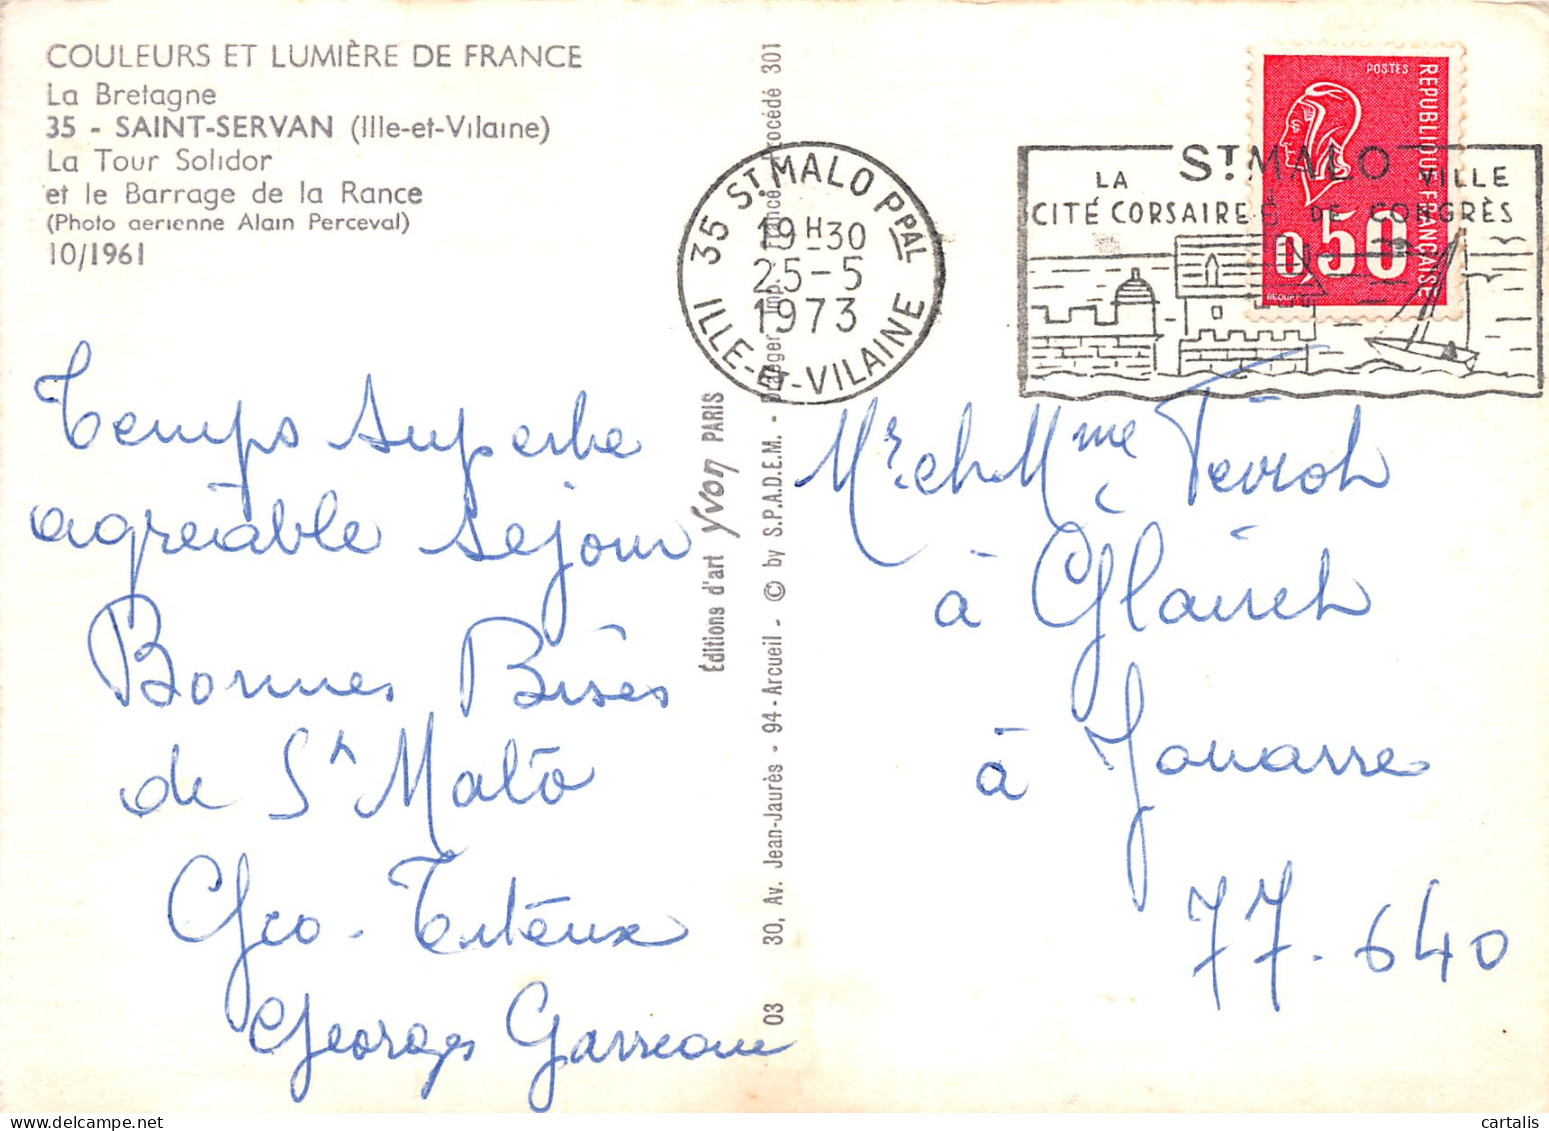 COULEURS ET LUMIÈRE DE FRANCE
La Bretagne
35 - SAINT-SERVAN (Ille-et-Vilaine)
La Tour Solidor
et le Barrage de la Rance
(Photo aerienne Alain Perceval)
10/1961
Temps superbe
agréable séjour
Bonnes Bises
de St Malo
Geo.
Georges Garreau
Éditions d'art Yvon PARIS
03 30, Av. Jean-Jaurès - 94-Arcueil - © by S.P.A.D.E.M. - Procédé 301
35 ST MALO PPAL
19H30
25-5
1973
ILLE-ET-VILAINE
ST MALO
LA VILLE
CITÉ CORSAIRE DE CONGRÈS
POSTES
REPUBLIQUE FRANÇAISE
0,50
Mr et Mme
à
à Jouarre
77.640
cartalis